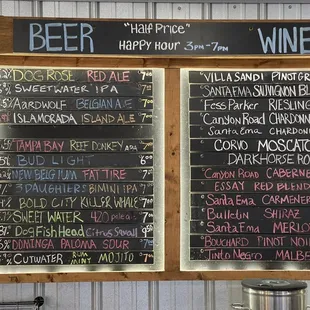 BEER
"Half Price"
HAPPY HOUR 3PM-7PM
WINE
DOG ROSE RED ALE
SWEETWATER IPA
AARDWOLF BELGIAN ALE
ISLAMORADA ISLAND ALE
TAMPA BAY REEF DONKEY APA
BUD LIGHT
NEW BELGIUM FAT TIRE
3 DAUGHTERS BIMINI IPA
BOLD CITY KILLER WHALE
SWEET WATER 420
DOGFISHHEAD CITRUS
DOMINGA PALOMA SOUR
CUTWATER RUM MINT MOJITO
VILLA SANDI PINOT GR
SANTA EMA SAUVIGNON BL
FESS PARKER RIESLING
CANYON ROAD CHARDONN
SANTA EMA CHARDON
CORVO MOSCATO
DARKHORSE RO
CANYON ROAD CABERNE
ESSAY RED BLEND
SANTA EMA CARMENER
BULLETIN SHIRAZ
SANTA EMA MERLO
BOUCHARD PINOT NOI
TINTO NEGRO MALBE